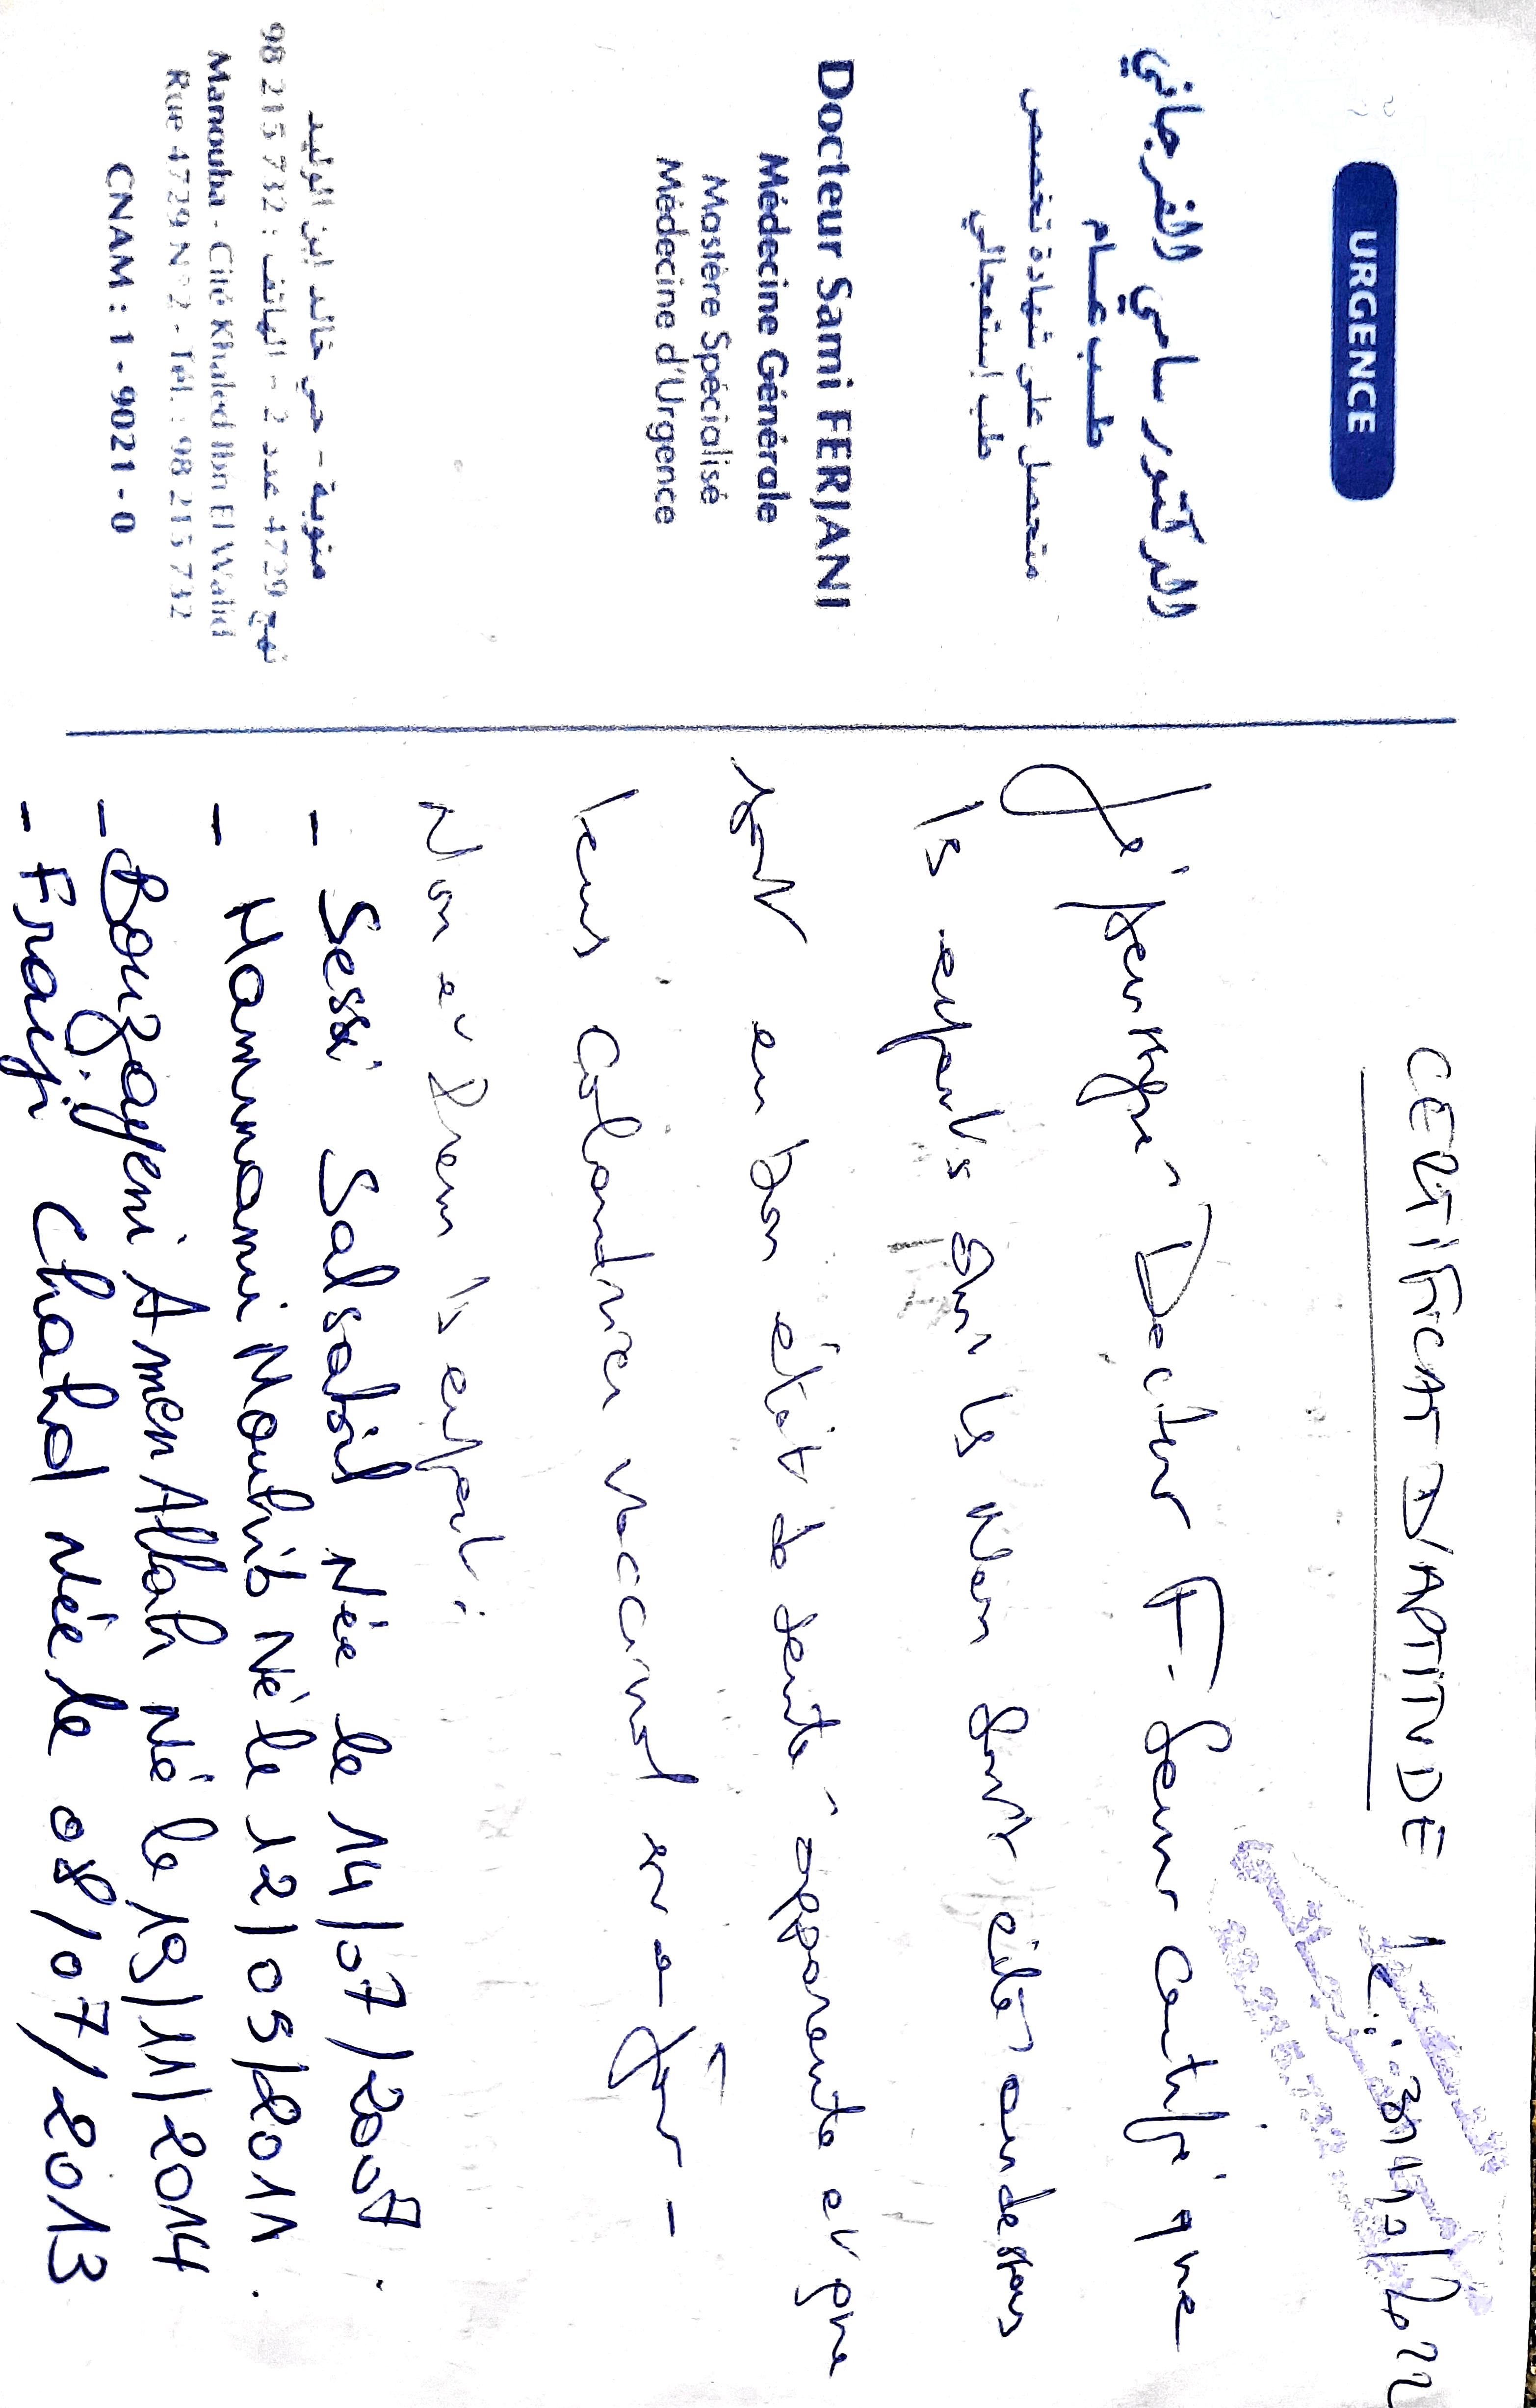 URGENCE
الدكتور سامي الفرجاني
طب عام
متحصل على شهادة تخصص
طب إستعجالي
Docteur Sami FERJANI
Médecine Générale
Mastère Spécialisé
Médecine d'Urgence
منوبة - حي خالد ابن الوليد
نهج 4729 عدد 2 - الهاتف : 98 215 732
Manouba - Cité Khaled Ibn El Walid
Rue 4729 N°2 - Tél. : 98 215 732
CNAM : 1 - 9021 - 0
CERTIFICAT D'APTITUDE le :
Je soussigné Docteur F. Sami certifie que
les enfants dont les Nom sont cités au dessous
sont en bon état de santé apparente et que
leurs calendrier vaccinal est à jour -
Nom et Prénom des enfants :
- Sessi Salsabil Née le 14/07/2007.
- Hammami Mouhib Né le 12/05/2011.
- Bouzayeni Amen Allah né le 19/11/2014
- Fraiji Chahd née le 08/07/2013